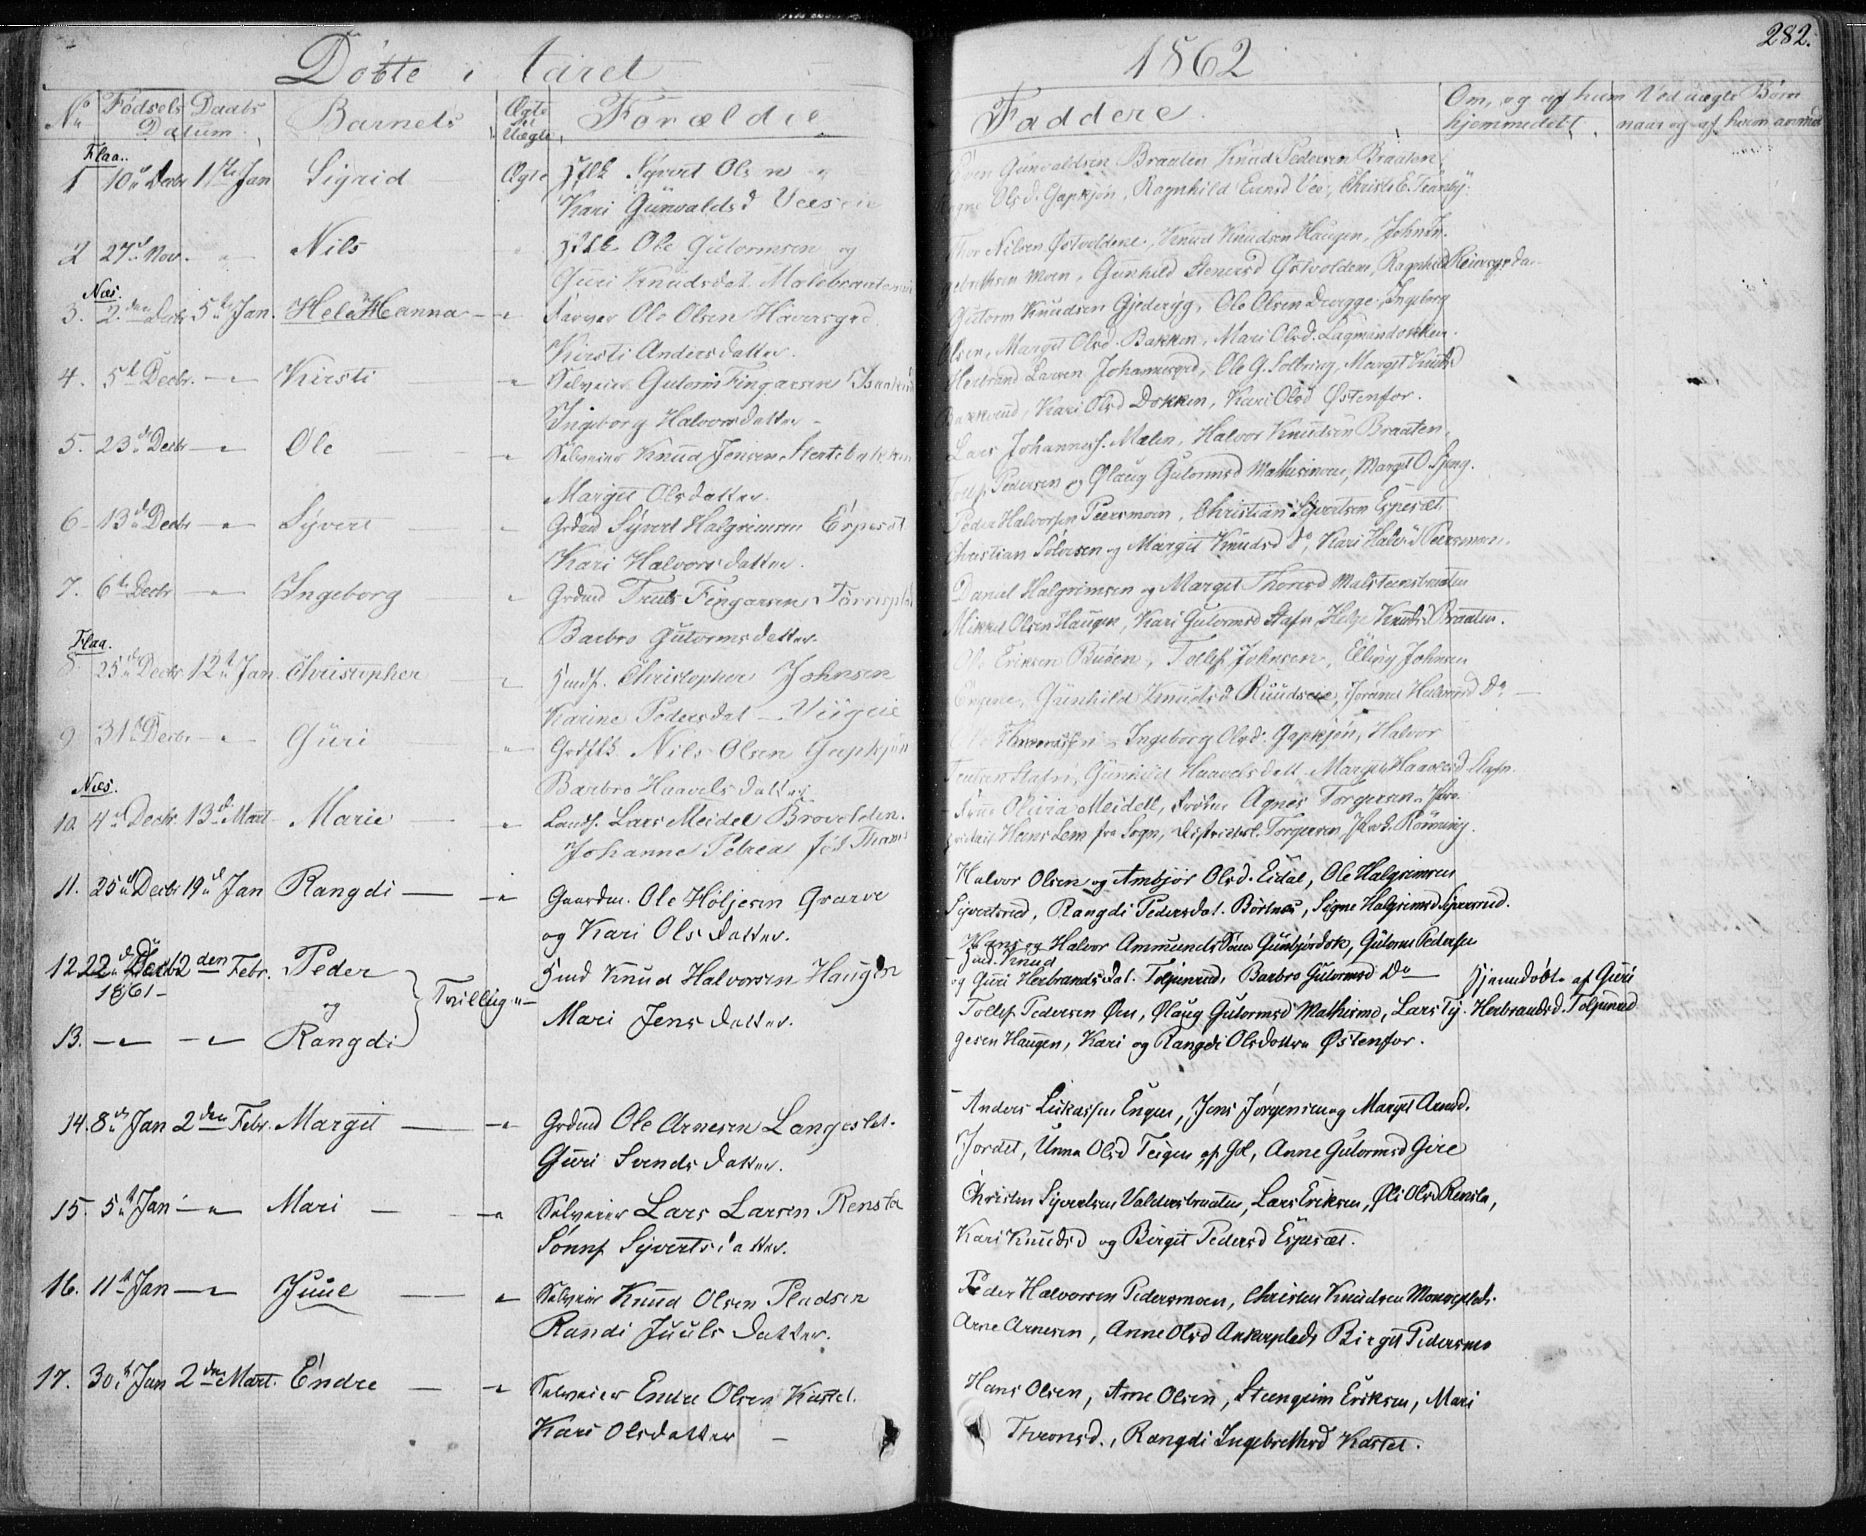 Døbte i Aaret
1862
282.
No
Fødsels Daabs
Datum.
Barnets
Ægte
el
Uægte
Forældre
Faddere.
Om, og af hvem
hjemmedøbt.
Ved uægte Børn
naar og af hvem anmeldt
Flaa.
1 10de Decbr 1ste Jan Sigrid Ægte Sylk Syvert Olsen og
Kari Gunvaldsd Veesen
Even Gunvaldsen Braaten Knud Pedersen Braaten
Olsd. Gapkjøn, Ragnhild Evensd Vee, Christi E. Trønby.
2 27de Nov. Nils Ole Gulormsen og
Guri Knudsdat. Molebraaten
Thor Nilsen Østvoldene, Knud Knudsen Haugen, John
Moen, Gunhild Stenersd Østvolden, Ragnhild
Næs.
3. 2den Decbr 5te Jan. Hele Hanna Farver Ole Olsen Haversgrd.
Kirsti Andersdatter.
Gutorm Knudsen Gjederyg, Ole Olsen Dragge, Ingeborg
Olsen, Margit Olsd. Bakken, Mari Olsd. Lagmandokken.
4. 5te Decbr. Kirsti Selveier Gutorm Fingarsen
Ingeborg Halvorsdatter
Herbrand Larsen Johannesgrd, Ole G. Solbring, Margit Knudsd
Bakkerud, Kari Olsd Dokken, Kari Olsd Østenfor.
5. 23de Decbr Ole Selveier Knud Jensen Stertebakken
Margit Olsdatter.
Lars Johanness. Malen, Halvor Knudsen Braaten,
Tollef Pedersen og Ølaug Gutormsd Mathismoe, Margit O.
6 13de Decbr Syvert Grdmd Syvert Halgrimsen Espeset
Kari Halvorsdatter.
Peder Halvorsen Peersmoen, Christian Syvertsen Espesæt
Christian Solvesen og Margit Knudsd Do, Kari Halvd Peersmoen.
7. 6te Decbr Ingeborg Grdmd Truls Fingarsen
Barbro Gutormsdatter.
Daniel Halgrimsen og Margit Thorsd Malsteensbraaten
Mikkel Olsen Haugen, Kari Gutormsd Stafn, Helge Knudsd Braaten.
Flaa.
8 25de Decbr 12te Jan Christopher Husf. Christopher Johnsen
Karine Pedersdat Viigeie
Ole Eriksen Buøen, Tollef Johnsen, Elling Johnsen
Gunhild Knudsd Ruudseie, Jorand Halvorsd Do
9 31te Decbr Guri Nils Olsen Gapkjøn
Barbro Haavelsdatter
Ingeborg Olsd. Gapkjøn, Halvor
Stafn, Gunhild Haavelsdatt Margit Haavelsd Stafn.
Næs.
10. 4de Decbr 13de Mart Marie Landh. Lars Meidel Brovolden.
Johanne Petrea fød Thams
Olivia Meidell, Frøken Agnes Torgersen,
Hans Lem fra Sogn, Torgersen, Rønning.
11. 25de Decbr 19de Jan Rangdi Gaardm. Ole Høljesen Qvarve
og Kari Olsdatter.
Halvor Olsen og Ambjør Olsd. Eidal, Ole Halgrimsen
Syvertsrud, Rangdi Pedersdat. Børtnes, Signe Halgrimsd Syversrud.
12. 22de Decbr 2den Febr. Peder
1861
og
Tvillinger
Husmd Knud Halvorsen Haugen
Mari Jensdatter.
Hans og Halvor Ammundssønner Guntjordok, Gutorm Pedersen
Husmd. Knud
og Guri Herbrandsdat. Tolpinrud, Barbro Gutormsd Do
Hjemdøbte af Guri
Herbrandsd. Tolpinrud
13. Rangdi
Tollef Pedersen Øen, Ølaug Gutormsd Mathismo, Lars Ty-
gesen Haugen, Kari og Rangdi Olsdøttre Østenfor.
14. 8de Jan 2den Febr. Margit Grdmd Ole Arnesen Langeslet.
Guri Svendsdatter.
Anders Lukassen Engen, Jens Jørgensen og Margit Arnesd.
Jordet, Unna Olsd Teigen af Gol, Anne Gutormsd Gire
15. 5te Jan Mari Selveier Lars Larsen Rensla
Sønnf Syvertsdatter.
Christen Syvertsen Valdersbraaten, Lars Eriksen, Øli Olsd Rensla,
Kari Knudsd og Birgit Pedersd Espesæt.
16. 11te Jan Juul Selveier Knud Olsen Pladsen
Randi Juulsdatter.
Peder Halvorsen Pedersmoen, Christen Knudsen
Arne Arnesen, Anne Olsd Ankerplads Birgit Pedersmo
17. 30te Jan 2den Mart. Endre Selveier Endre Olsen Kastel.
Kari Olsdatter
Hans Olsen, Arne Olsen, Steengrim Eriksen, Mari
Thronsd., Rangdi Ingebrethsd Kastel.